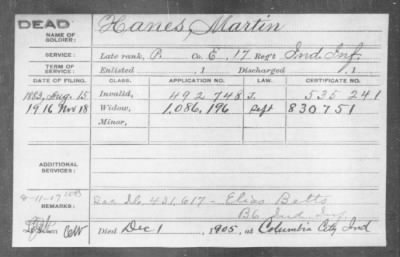 DEAD
NAME OF SOLDIER: Hanes, Martin
SERVICE: Late rank, P. Co. E, 17 Reg't Ind. Inf.
TERM OF SERVICE: Enlisted , 1 Discharged , 1
DATE OF FILING. CLASS. APPLICATION NO. LAW. CERTIFICATE NO.
1883, Aug. 15 Invalid, 492 748 J. 535 241
1916 Nov 18 Widow, 1,086,196 830751
Minor,
ADDITIONAL SERVICES:
8-11-17
REMARKS: 431,617 - Elias Betts
Ind Inf
Died Dec 1, 1905, at Columbia City Ind